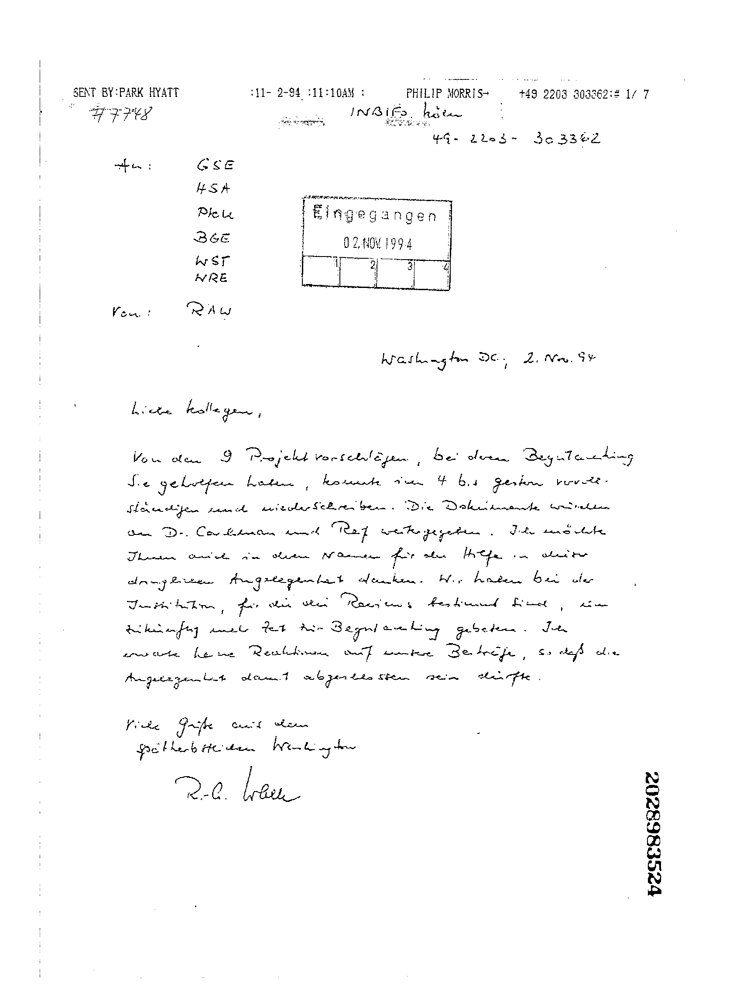 SENT BY:PARK HYATT :11- 2-94 :11:10AM : PHILIP MORRIS→ +49 2203 303362:# 1/ 7
#7748 INBIFO, Köln
49- 2203- 303362
An: GSE
HSA
BGE
WST
WRE
Eingegangen
02. NOV. 1994
1 2 3 4
Von: RAW
Washington DC, 2. Nov. 94
Liebe Kollegen,
Von den 9 Projektvorschlägen, bei deren Begutachtung
Sie geholfen haben, konnte ich 4 bis gestern vervoll-
ständigen und niederschreiben. Die Dokumente wurden
an Dr. und Reif weitergegeben. Ich möchte
Ihnen auch in deren Namen für die Hilfe in dieser
dringlichen Angelegenheit danken. Wir haben bei der
Institution, für die die Reviews bestimmt sind, um
zukünftig mehr Zeit zur Begutachtung gebeten. Ich
erwarte keine Reaktionen auf unsere Beiträge, so daß die
Angelegenheit damit abgeschlossen sein dürfte.
Viele Grüße aus dem
spätherbstlichen Washington
R.-A.
2028983524